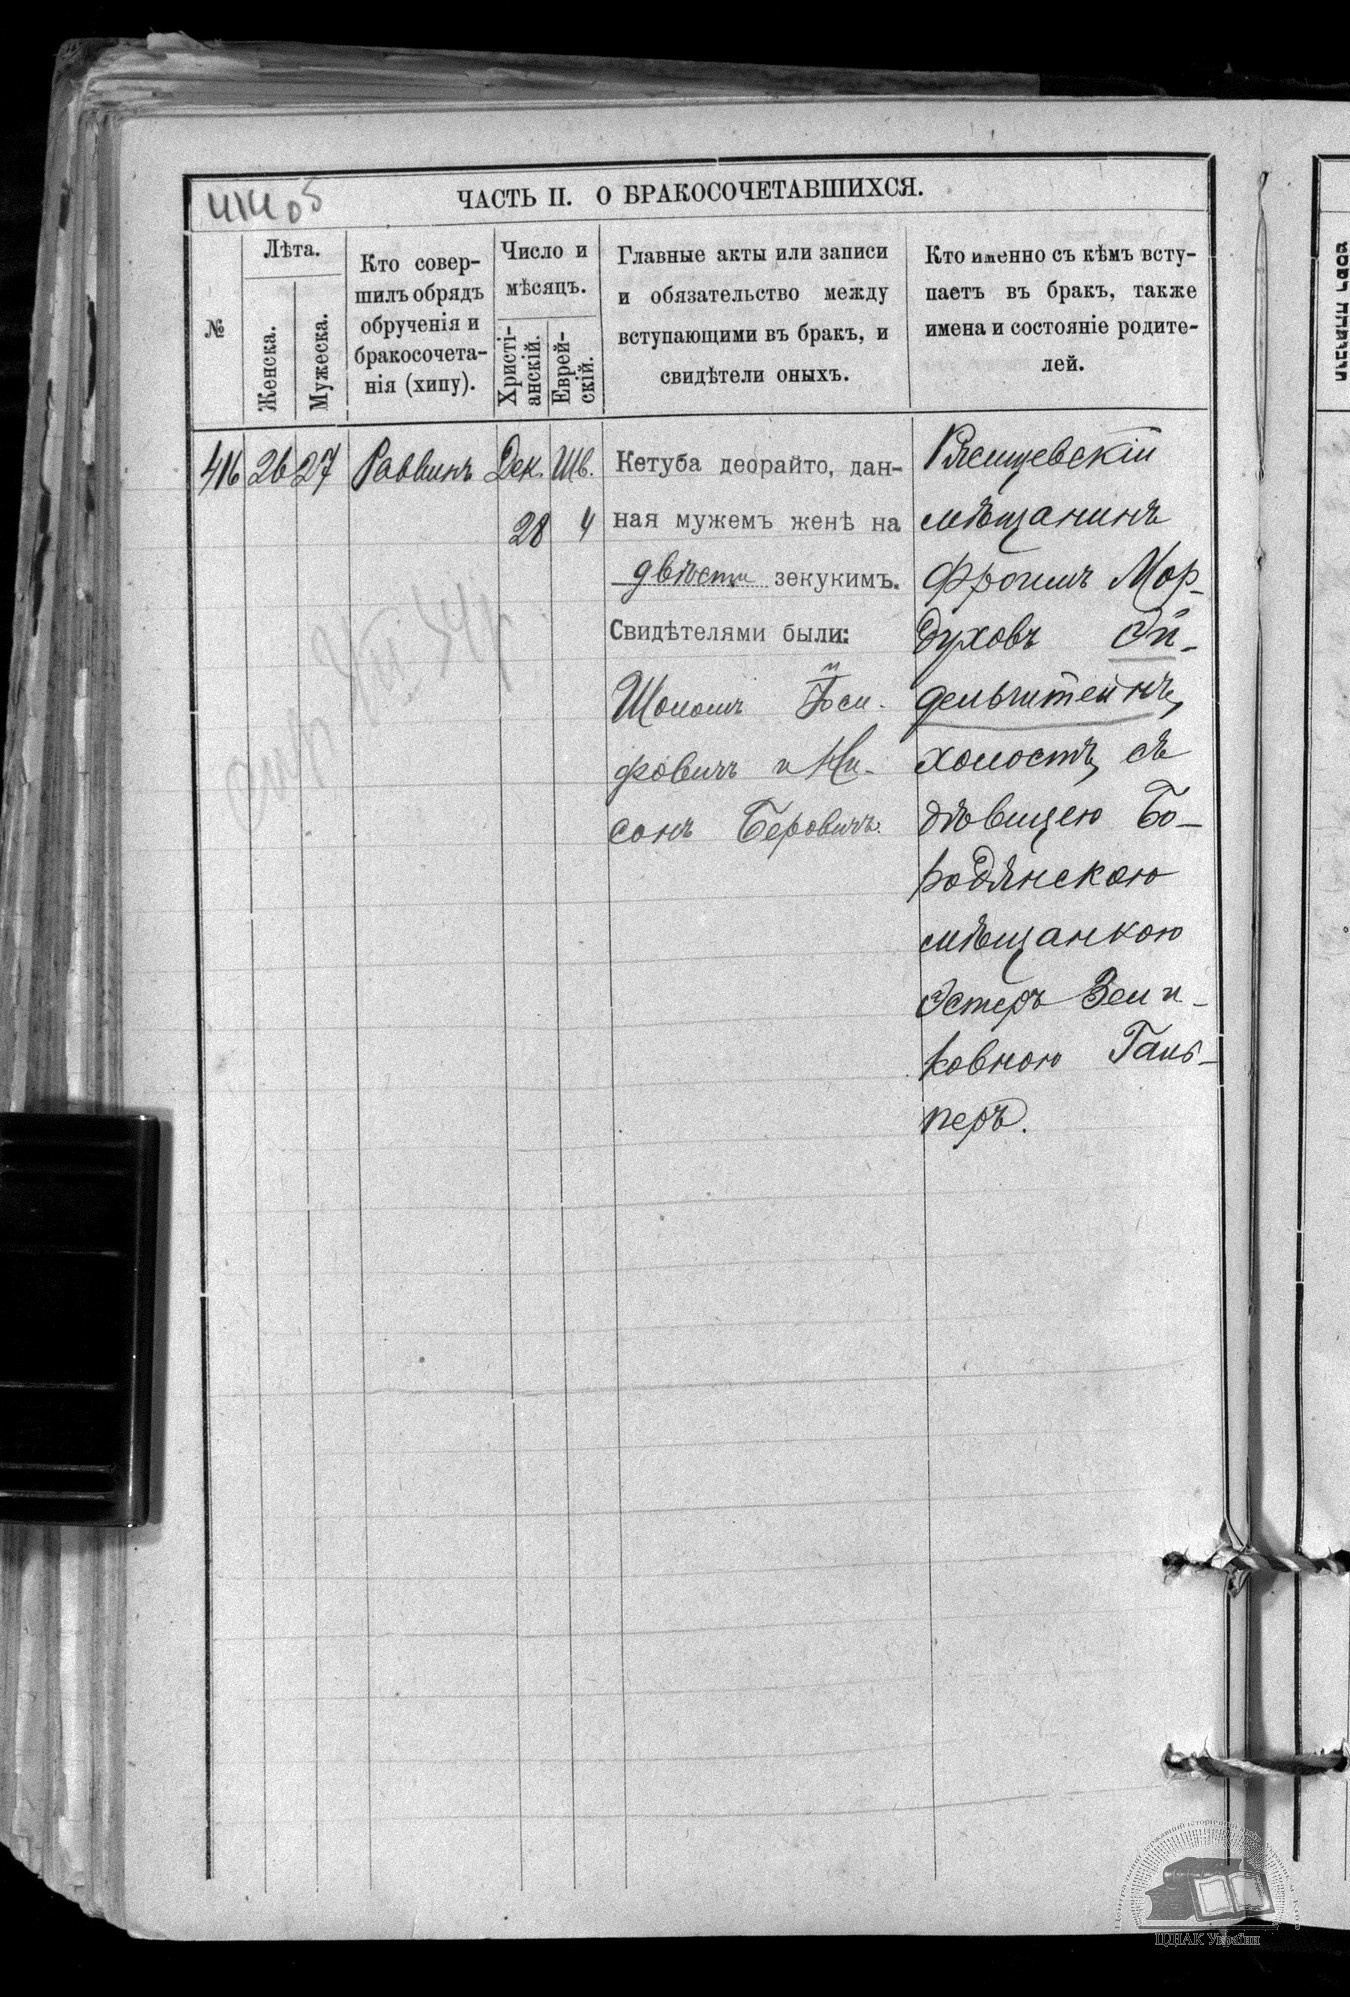 ЧАСТЬ II. О БРАКОСОЧЕТАВШИХСЯ.
№
Лѣта.
Женска.
Мужеска.
Кто совер-
шилъ обрядъ
обрученія и
бракосочета-
нія (хипу).
Число и
мѣсяцъ.
Христі-
анскій.
Еврей-
скій.
Главные акты или записи
и обязательство между
вступающими въ бракъ, и
свидѣтели оныхъ.
Кто именно съ кѣмъ всту-
паетъ въ бракъ, также
имена и состояніе родите-
лей.
416 26 27 Раввинъ Дек. Шв.
28 4
Кетуба деорайто, дан-
ная мужемъ женѣ на
двѣсти зекукимъ.
Свидѣтелями были:
Шоломъ Іоси-
фовичъ и Ни-
сонъ Беровичъ.
Ржищевскій
мѣщанинъ
Фроимъ Мор-
духовъ Эй-
дельштейнъ,
холостъ, съ
дѣвицею Бо-
родянскою
мѣщанкою
Эстеръ Зели-
ковною Галь-
перъ.
ЦДІАК України